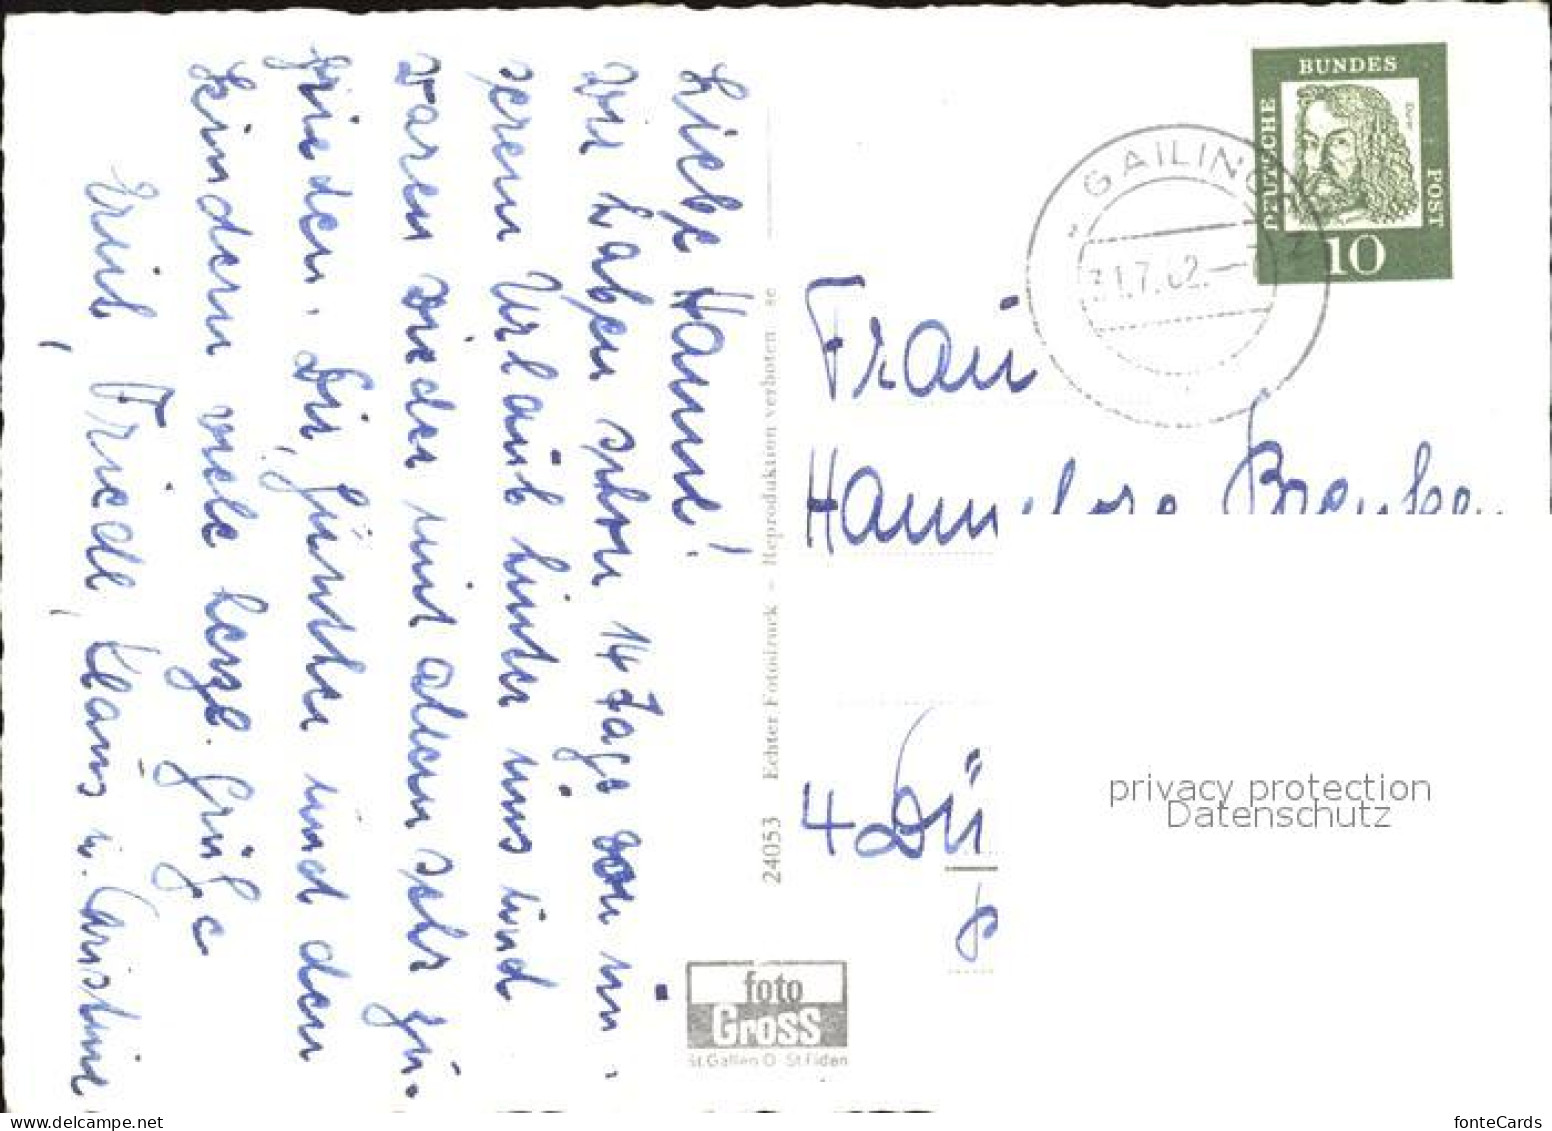 Liebe Hanne!
Wir haben schon 14 Tage von un-
serem Urlaub hinter uns und
waren wieder mit allem sehr zu-
frieden. Dir, Günther und den
Kindern viele herzl. Grüße
Erich, Friedel, Klaus u. Christine
24053 Echter Fotodruck - Reproduktion verboten
foto
Gross
St.Gallen O St.Fiden
BUNDES
DEUTSCHE
POST
Dürer
10
GAILINGEN
31.7.62.
Frau
Hannelore
4 Dü
privacy protection
Datenschutz
fonteCards